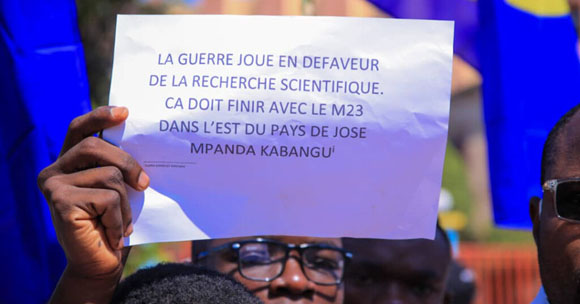 LA GUERRE JOUE EN DEFAVEUR
DE LA RECHERCHE SCIENTIFIQUE.
CA DOIT FINIR AVEC LE M23
DANS L'EST DU PAYS DE JOSE
MPANDA KABANGUⁱ